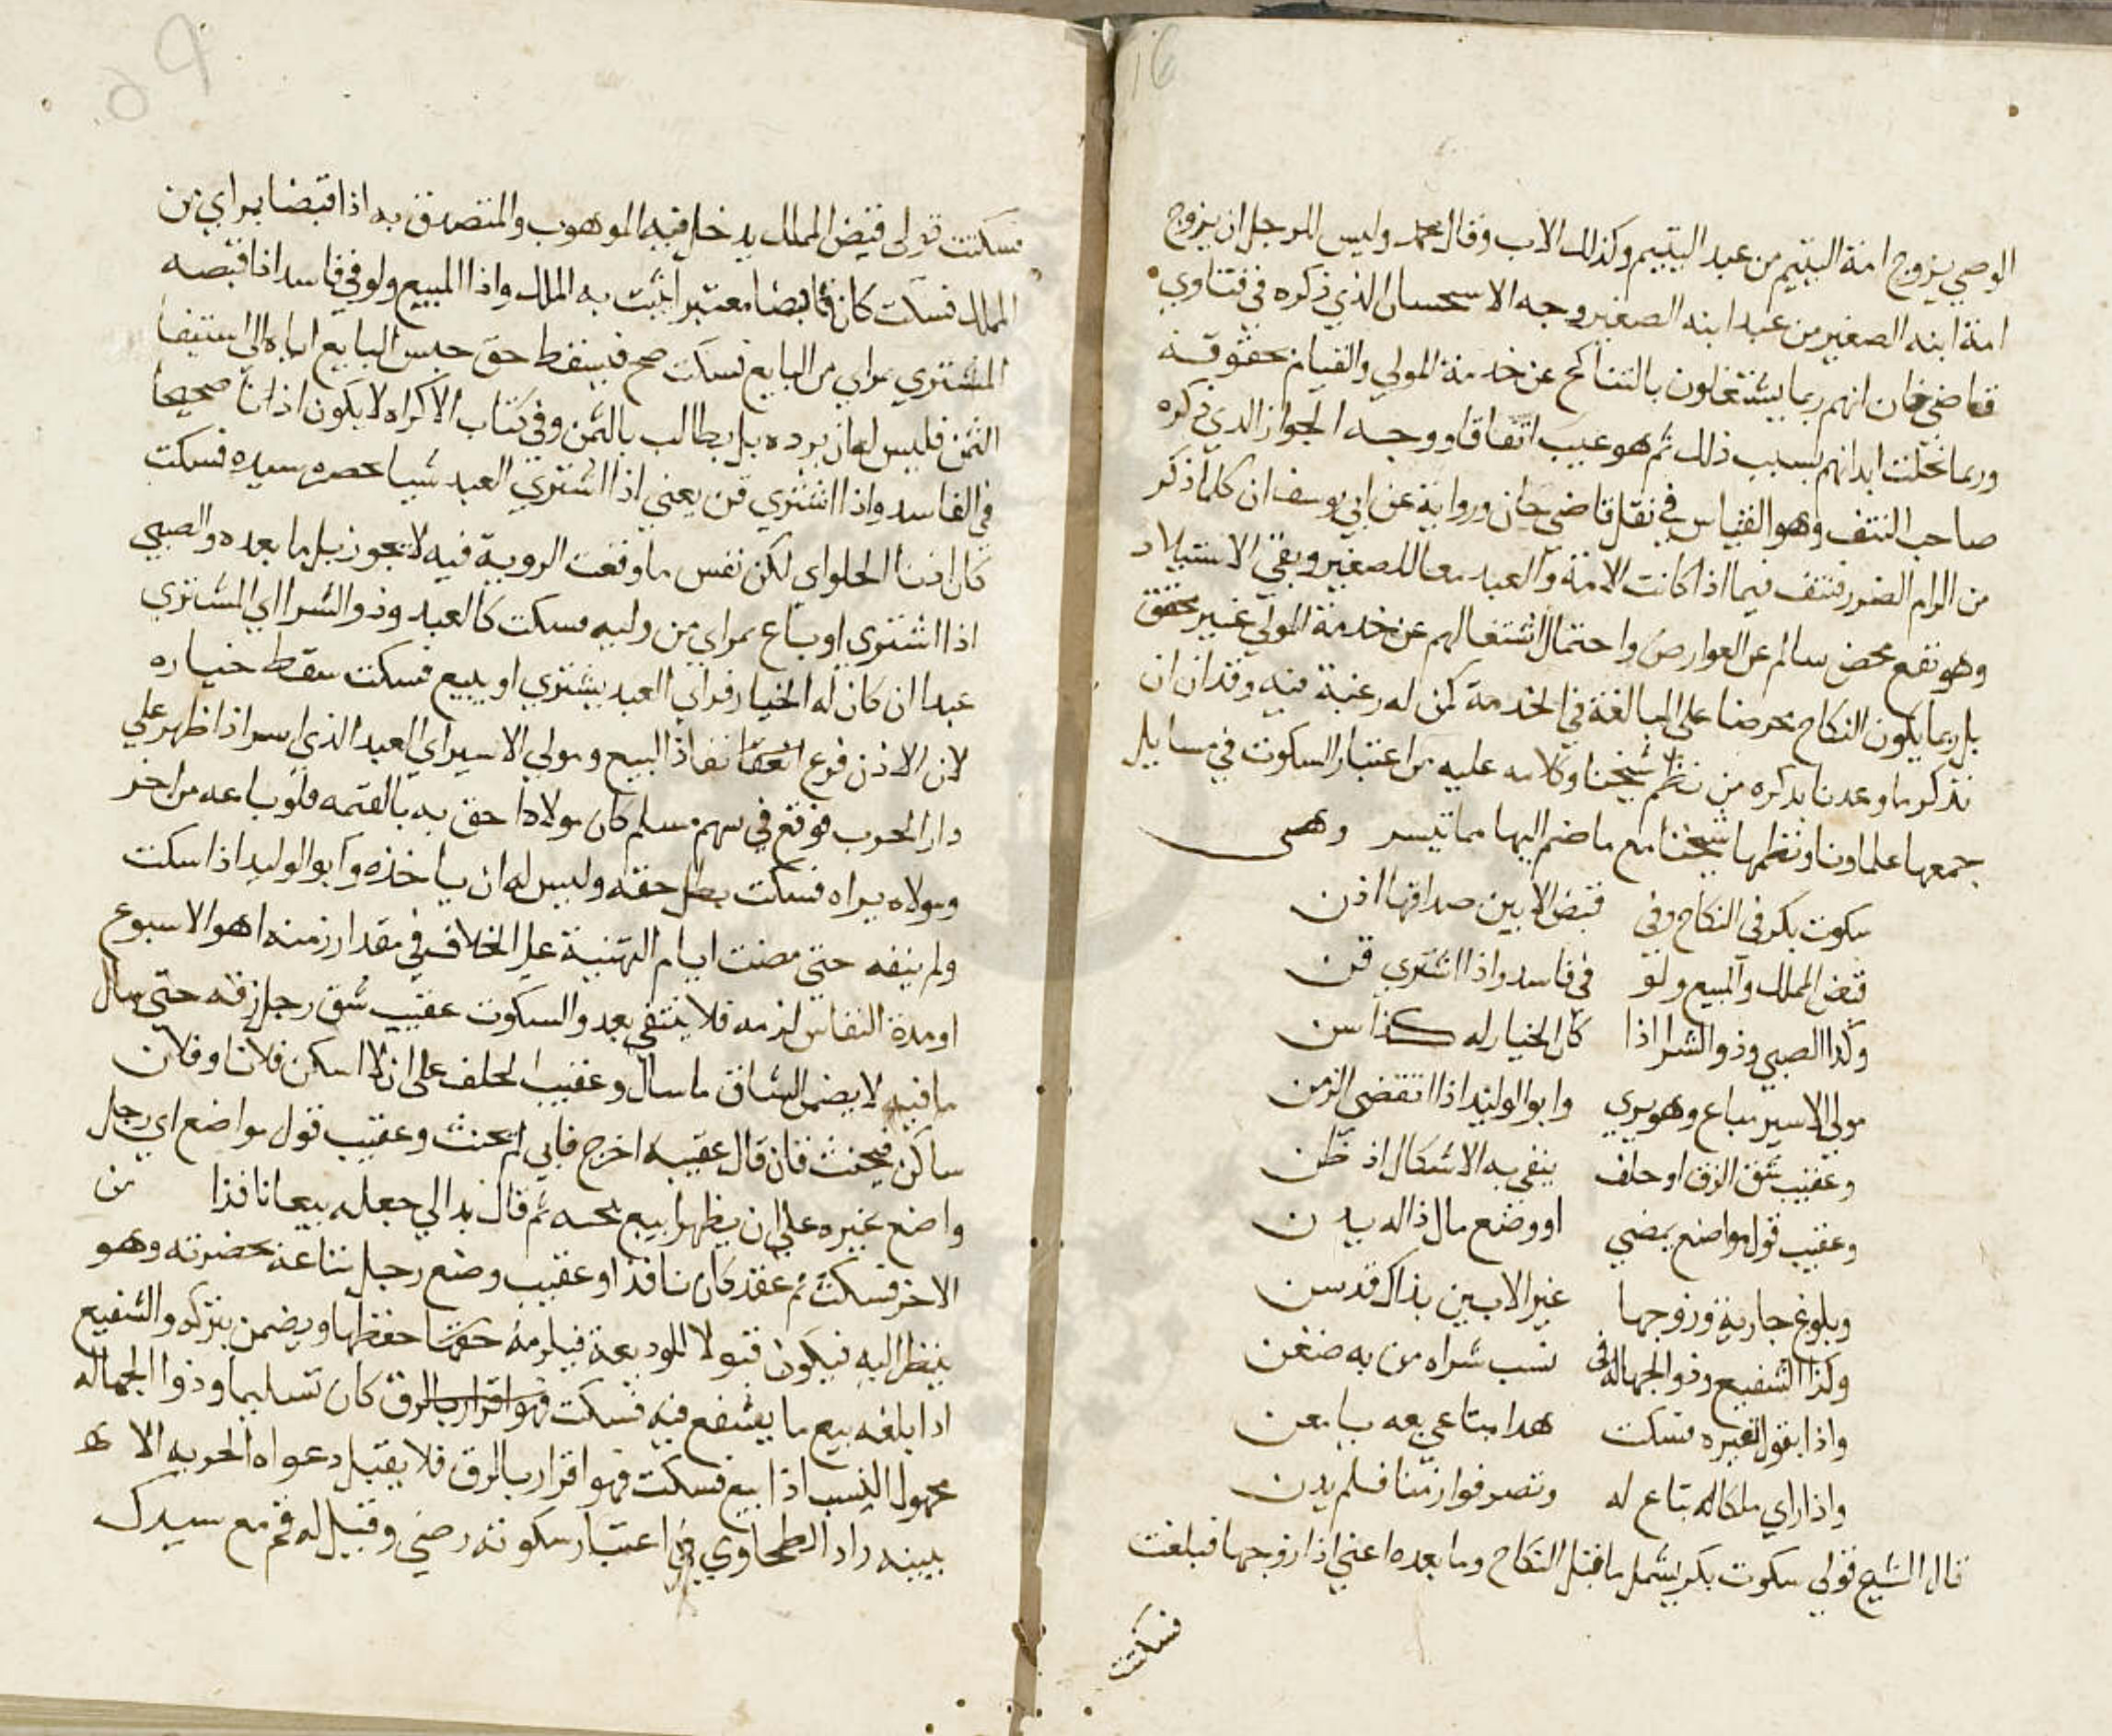 الوصي يزوج امة اليتيم من عبد اليتيم وكذلك الاب وقال محمد وليس للرجل ان يزوج
امة ابنه الصغير من عبد ابنه الصغير وجه الاستحسان الذي ذكره في فتاوي
قاضي خان انهم ربما يشتغلون بالتناكح عن خدمة المولي والقيام بحقوقه
وربما نحلت ابدانهم بسبب ذلك ثم هو عيب اتفاقا ووجه الجواز الذي ذكره
صاحب النتف وهو القياس في نقل قاضي خان ورواية عن ابي يوسف ان كلما ذكر
من الزام الضرر فيما اذا كانت الامة والعبد معا للصغير وبقي الاستيلاد
وهو نفع محض سالم عن العوارض واحتمال اشتغالهم عن خدمة المولي غير محقق
بل ربما يكون النكاح محرضا علي المبالغة في الخدمة كمن له رغبة فيه وقد ان ان
نذكر ما وعدنا بذكره من نظم شيخنا وكلامه عليه من اعتبار السكوت في مسايل
جمعها علماونا ونظمها شيخنا مع ما ضم اليها مما تيسر وهي
سكوت بكر في النكاح وفي قبض الابين صداقها اذن
قبض المملك والمبيع ولو في فاسد واذا اشتري قن
وكذا الصبي وذو الشرا اذا كان الخيار له كذا سن
مولي الاسير يباع وهو يري وابو الوليد اذا انقضي الزمن
وعقيب شق الزق او حلف ينفي به الاسكان اذ ظن
وعقيب قول مواضع بمضي او وضع مال ذا له يدن
وبلوغ جارية وزوجها غير الابين بذاك قد سن
وكذا الشفيع وذو الجهالة في نسب شراه من به ضغن
واذا يقول لغيره فسكت هدا متاعي بعه يا معن
واذا راي ملكا له يباع له وتصرفوا زمنا فلم يدن
قال الشيخ قولي سكوت بكر يشمل ما قبل النكاح وما بعده اعني اذا زوجها فبلغت
فسكتت
فسكتت قولي قبض المملك يدخل فيه الموهوب والمتصدق به اذا قبضا بمراي من
المملك فسكت كان قابضا معتبرا يثبت به الملك واذا المبيع ولو في فاسد اذا قبضه
المشتري بمراي من البايع فسكت صح فيسقط حق حبس البايع اياه الي استيفا
الثمن فليس له ان يرده بل يطالب بالثمن وفي كتاب الاكراه لا يكون اذنا صحيحا
في الفاسد واذا اشتري قن يعني اذا اشتري العبد شيا بحضرة سيده فسكت
كان اذنا لكن نفس ما وقعت الروية فيه لا تجوز بل ما بعده والصبي
اذا اشتري او باع بمراي من وليه فسكت كالعبد وذو الشرا اي المشتري
عبدا ان كان له الخيار فراي العبد يشتري او يبيع فسكت سقط خياره
لان الاذن فرع نفاذ البيع ومولي الاسير اي العبد الذي اسر اذا ظهر علي
دار الحرب فوقع في سهم مسلم كان مولاه احق به بالقيمه فلو باعه من اخر
ومولاه يراه فسكت بطل حقه وليس له ان ياخذه وابو الوليد اذا سكت
ولم ينفه حتي مضت ايام التهنية علي الخلاف في مقدار زمنه اهو الاسبوع
او مدة النفاس لزمه فلا ينتفي بعد والسكوت عقيب شق رجل زقه حتي سال
ما فيه لا يضمن الشاق ما سال وعقيب الحلف علي ان لا اسكن فلانا وفلان
ساكن فيحنث فان قال عقيبه اخرج فابي لم يحنث وعقيب قول مواضع اي رجل
واضع غيره علي ان يظهرا بيع ثم قال بدا لي جعله بيعا نافذا من
الاخر فسكت ثم عقد كان نافذا وعقيب وضع رجل متاعه بحضرته وهو
ينظر اليه فيكون قبولا للوديعة فيلزمه حفظها ويضمن بتركه والشفيع
اذا بلغه بيع ما يشفع فيه فسكت كان تسليما وذوا الجهاله
مجهول النسب اذا بيع فسكت فهو اقرار بالرق فلا يقبل دعواه الحريه الا
ببينه زاد الطحاوي في اعتبار سكوته رضي وقيل له قم مع سيدك